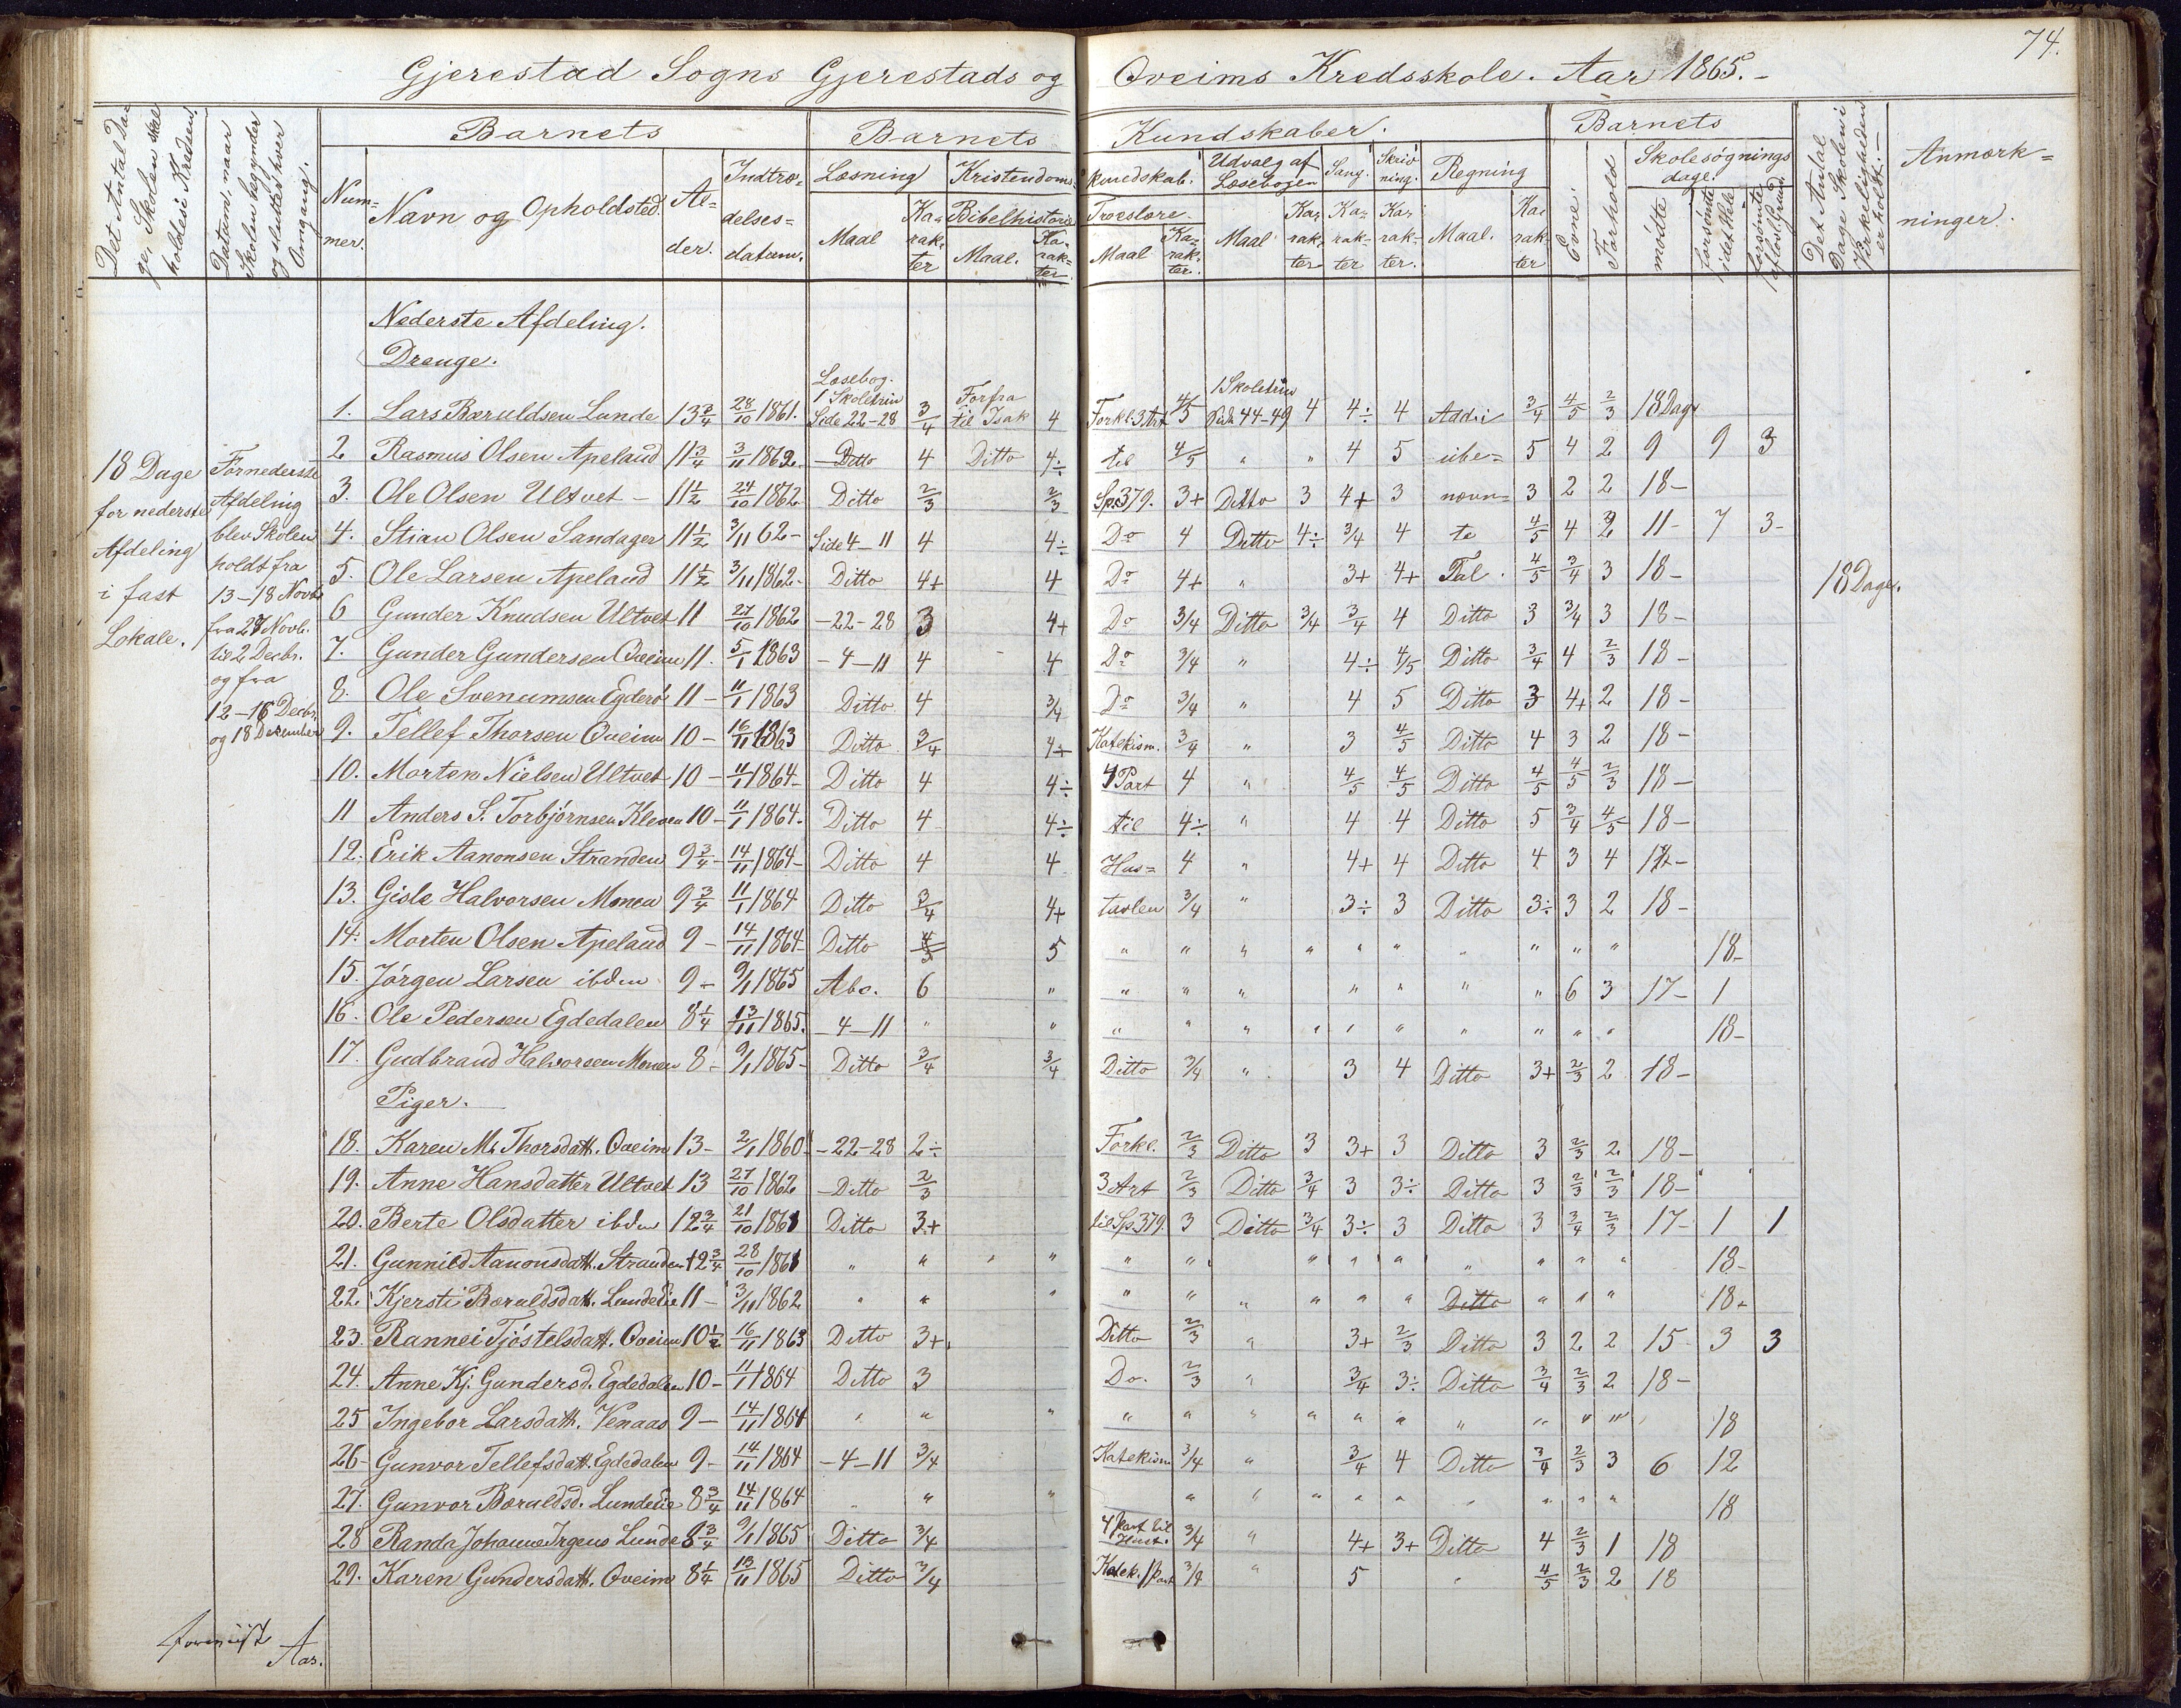 74.
Gjerestad Sogns Gjerestads og Oveims Kredsskole. Aar 1865.-
Det Antal Dage, Skolen skal holdes i Kredsen.
Datum, naar Skolen begynder og slutter hver Omgang.
Barnets
Barnets
Kundskaber.
Barnets
Det Antal Dage Skolen i Virkeligheden er holdt.-
Anmærk=ninger.
Nummer.
Navn og Opholdsted.
Alder.
Indtrædelsesdatum.
Læsning
Maal
Karakter
Kristendoms=kundskab.
Bibelhistorie
Maal.
Karakter
Troeslære.
Maal
Karakter.
Udvalg af Læsebogen
Maal
Karakter
Sang.
Karakter
Skrivning.
Karakter.
Regning
Maal.
Karakter
Evne
Forhold
Skolesøgnings dage.
mødte
forsømte i det Hele
forsømte af lovl. Grund.
18 Dage for nederste Afdeling i fast Lokale.
For nederste Afdeling blev Skolen holdt fra 13-18 Novb. fra 27 Novb. til 2 Decbr. og fra 12-16 Decbr. og 18 December
Nederste Afdeling.
Drenge.
1. Lars Bæruldsen Lunde 13 3/4 28/10 1861. Læsebog. 1 Skoletrin Side 22-28 3/4 Forfra til Isak 4 Forkl. 3 Art 4/5 1 Skoletrin Side 44-49 4 4÷ 4 Addi 3/4 4/5 2/3 18 Dage
2 Rasmus Olsen Apeland 11 3/4 3/11 1862. Ditto 4 Ditto 4÷ til 4/5 " " 4 5 ube= 5 4 2 9 9 3
3. Ole Olsen Ultvet - 11 1/2 24/10 1862 Ditto 2/3 2/3 Sp. 379. 3+ Ditto 3 4+ 3 nævn= 3 2 2 18-
4. Stian Olsen Sandager 11 1/2 3/11 62- Side 4-11 4 4÷ Do 4 Ditto 4÷ 3/4 4 te 4/5 4 2 11- 7 3-
5. Ole Larsen Apeland 11 1/2 3/11 1862- Ditto 4+ 4 Do 4+ " 3+ 4+ Tal. 4/5 3/4 3 18- 18 Dage.
6 Gunder Knudsen Ultvet 11 27/10 1862 -22-28 3 4+ Do 3/4 Ditto 3/4 3/4 4 Ditto 3 3/4 3 18-
7. Gunder Gundersen Oveim 11. 5/1 1863 -4-11 4 4 Do 3/4 " 4÷ 4/5 Ditto 3/4 4 2/3 18-
8. Ole Svenumsen Egderø 11- 11/1 1863 Ditto 4 3/4 Do 3/4 " 4 5 Ditto 3 4+ 2 18-
9. Tellef Thorsen Oveim 10- 16/11 1863 Ditto 3/4 4+ Katekism. 3/4 " 3 4/5 Ditto 4 3 2 18-
10. Morten Nielsen Ultvet 10- 11/1 1864- Ditto 4 4÷ 4 Part 4 " 4/5 4/5 Ditto 4/5 4/5 2/3 18-
11 Anders S. Torbjørnsen Kleven 10- 11/1 1864. Ditto 4 4÷ til 4÷ " 4 4 Ditto 5 3/4 4/5 18-
12. Erik Aanonsen Stranden 9 3/4- 14/11 1864- Ditto 4 4 Hus= 4 " 4+ 4 Ditto 4 3 4
13. Gisle Halvorsen Monen 9 3/4 11/1 1864 Ditto 3/4 4+ tavlen 3/4 " 3÷ 3 Ditto 3÷ 3 2 18-
14. Morten Olsen Apeland 9- 14/11 1864- Ditto 4/5 5 " " " " " " " " " " 18-
15. Jørgen Larsen ibdm 9- 9/1 1865 Abc. 6 " " " " " " " " 6 3 17- 1
16. Ole Pedersen Egdedalen 8 1/4 13/11 1865. -4-11 " " " " " " " " " " " " 18-
17. Gudbrand Halvorsen Monen 8- 9/1 1865- Ditto 3/4 3/4 Ditto 3/4 " 3 4 Ditto 3+ 2/3 2 18-
Piger.
18. Karen M. Thorsdatt. Oveim 13- 2/1 1860 -22-28 2÷ Forkl. 2/3 Ditto 3 3+ 3 Ditto 3 2/3 2 18-
19. Anne Hansdatter Ultvet 13 27/10 1862 Ditto 2/3 3 Art 2/3 Ditto 3/4 3 3÷ Ditto 3 2/3 2/3 18-
20. Berte Olsdatter ibdm 12 3/4 21/10 1861 Ditto 3+ til Sp. 379. 3 Ditto 3/4 3÷ 3 Ditto 3 3/4 2/3 17- 1 1
21. Gunnild Aanonsdatt. Stranden 12 3/4 28/10 1861 " " " " " " " " " " " " " 18-
22. Kjersti Bæruldsdatt. Lundelie 11- 3/11 1862 " " " " " " " " " Ditto " " " 18+
23. Rannei Tjöstelsdatt. Oveim 10 1/2 16/11 1863 Ditto 3+ Ditto 2/3 " 3+ 2/3 Ditto 3 2 2 15 3 3
24. Anne Kj. Gundersd. Egdedalen 10- 11/1 1864 Ditto 3 Do. 2/3 " 3/4 3÷ Ditto 3/4 2/3 2 18-
25 Ingebor Larsdatt. Venaas 9- 14/11 1864 " " " " " " " " " " " " " 18
26- Gunvor Tellefsdatt. Egdedalen 9- 14/11 1864 -4-11 3/4 Katekism 3/4 " 3/4 4 Ditto 3/4 2/3 3 6 12
27. Gunvor Bæruldsd. Lundelie 8 3/4 14/11 1864 " " " " " " " " " " " " 18
28 Randa Johanne Irgens Lunde 8 3/4 9/1 1865 Ditto 3/4 4 Part til Hust. 3/4 " 4+ 3+ Ditto 4 2/3 1 18
29. Karen Gundersdatt. Oveim 8 1/4 13/11 1865 Ditto 3/4 Katek. 1 Part 3/4 " 5 " 4/5 2/3 2 18
Aar.